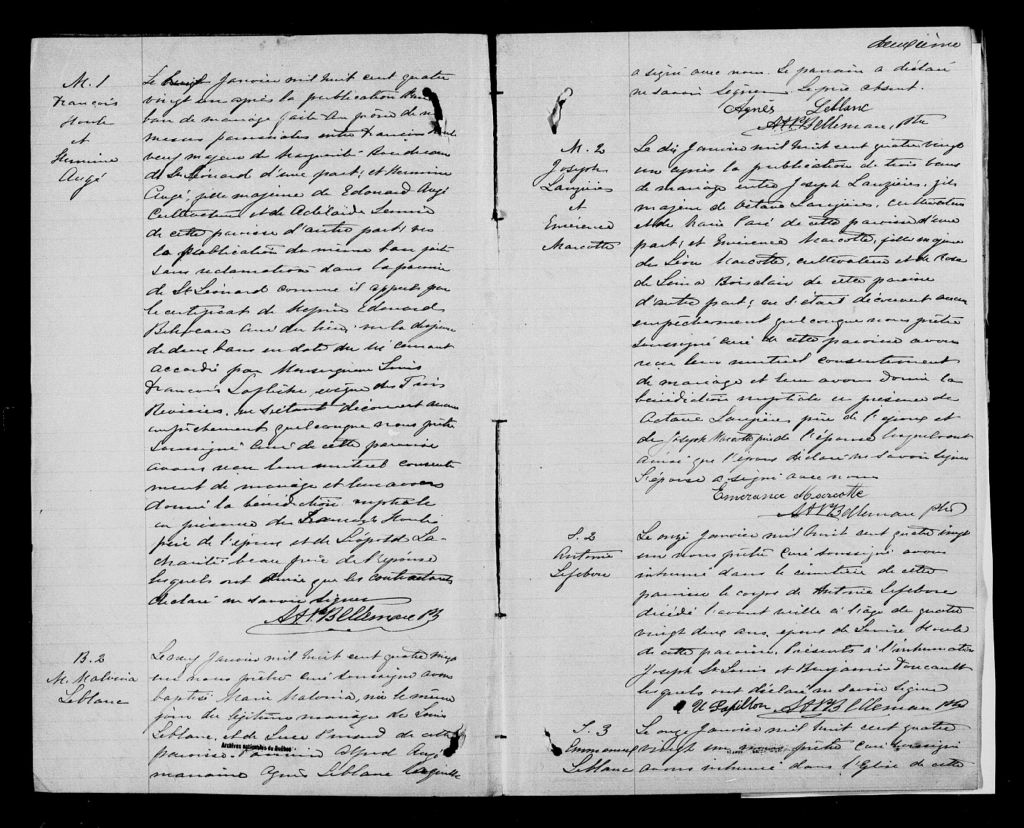 M. 1
François
Houle
et
Hermine
Augé
Le huit Janvier mil huit cent quatre
vingt un après la publication d'un
ban de mariage faite au prône de nos
messes paroissiales entre François Houle
veuf majeur de Marguerite Boudreau
de St Léonard d'une part; et Hermine
Augé fille majeure de Edouard Augé
Cultivateur et de Adélaïde
de cette paroisse d'autre part; vu
la publication du même ban faite
sans réclamation dans la paroisse
de St Léonard comme il appert par
le certificat de Messire Edouard
Béliveau curé du lieu; vu la dispense
de deux bans en date du six courant
accordée par Monseigneur Louis
François Laflèche évêque des Trois
Rivières, ne s'étant découvert aucun
empêchement quelconque nous prêtre
soussigné Curé de cette paroisse
avons reçu leur mutuel consente
ment de mariage et leur avons
donné la bénédiction nuptiale
en présence de François Houle
père de l'époux et de Léopold La-
charité beau frère de l'épouse
lesquels ont ainsi que les contractants
déclaré ne savoir signer
B.2
M. Malvina
Leblanc
Le Janvier mil huit cent quatre vingt
un nous prêtre curé soussigné avons
baptisé Marie Malvina, née le même
jour du légitime mariage de Louis
Leblanc, et de Luce de cette
paroisse. Parrain Alfred Augé
marraine Agnès Leblanc laquelle
Archives nationales du Québec
deuxième
a signé avec nous. Le parrain a déclaré
ne savoir signer. Le père absent.
Agnès Leblanc
Ptre
M. 2
Joseph
Lauzières
et
Emérence
Marcotte
Le dix Janvier mil huit cent quatre vingt
un après la publication de trois bans
de mariage entre Joseph Lauzières, fils
majeur de Octave Lauzières, cultivateur
et de Marie Paré de cette paroisse d'une
part; et Emérence Marcotte, fille majeure
de Léon Marcotte, cultivateur et de Rose
de Lima Boisclair de cette paroisse
d'autre part; ne s'étant découvert aucun
empêchement quelconque nous prêtre
soussigné curé de cette paroisse avons
reçu leur mutuel consentement
de mariage et leur avons donné la
bénédiction nuptiale en présence de
Octave Lauzières, père de l'époux et
de Joseph Marcotte père de l'épouse lesquels ont
ainsi que l'époux déclaré ne savoir signer
L'épouse a signé avec nous
Emerence Marcotte
Ptre
S. 2
Antoine
Lefebvre
Le onze Janvier mil huit cent quatre vingt
un nous prêtre curé soussigné avons
inhumé dans le cimetière de cette
paroisse le corps de Antoine Lefebvre
décédé l'avant veille à l'âge de quatre
vingt deux ans, époux de Louise Houle
de cette paroisse. Présents à l'inhumation
Joseph St Louis et Benjamin Foucault
lesquels ont déclaré ne savoir signer
U. Papillon,
S. 3
Emmanuel
Leblanc
Le onze Janvier mil huit cent quatre
vingt un nous prêtre Curé soussigné
avons inhumé dans l'Eglise de cette